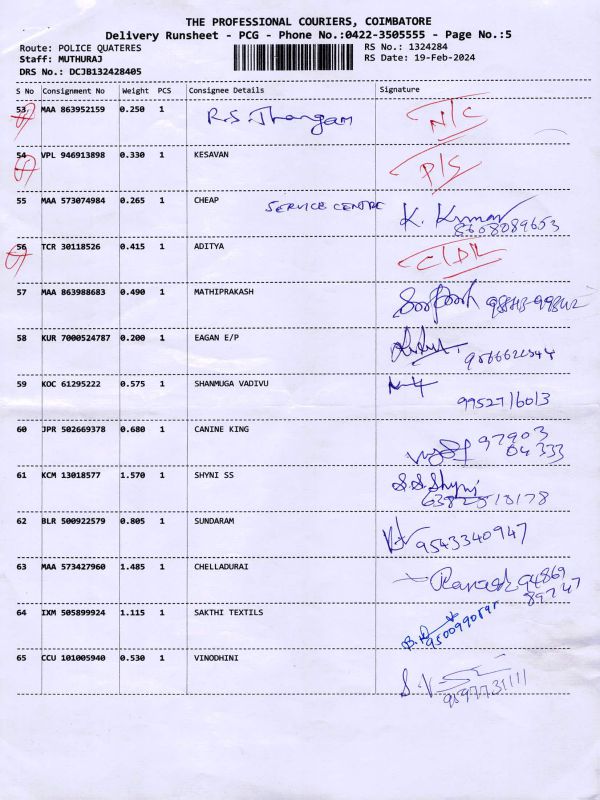 THE PROFESSIONAL COURIERS, COIMBATORE
Delivery Runsheet - PCG - Phone No.:0422-3505555 - Page No.:5
Route: POLICE QUATERES RS No.: 1324284
Staff: MUTHURAJ RS Date: 19-Feb-2024
DRS No.: DCJB132428405
S No Consignment No Weight PCS Consignee Details Signature
53 MAA 863952159 0.250 1 R.S. Thangam N/C
54 VPL 946913898 0.330 1 KESAVAN P/S
55 MAA 573074984 0.265 1 CHEAP SERVICE CENTRE K. Kumar
8608089653
56 TCR 30118526 0.415 1 ADITYA C/DL
57 MAA 863988683 0.490 1 MATHIPRAKASH
58 KUR 7000524787 0.200 1 EAGAN E/P
59 KOC 61295222 0.575 1 SHANMUGA VADIVU
9952716013
60 JPR 502669378 0.680 1 CANINE KING 97903
04333
61 KCM 13018577 1.570 1 SHYNI SS S.S.Shyni
6382518178
62 BLR 500922579 0.805 1 SUNDARAM 9543340947
63 MAA 573427960 1.485 1 CHELLADURAI 94869
89747
64 IXM 505899924 1.115 1 SAKTHI TEXTILS
65 CCU 101005940 0.530 1 VINODHINI
9597731111